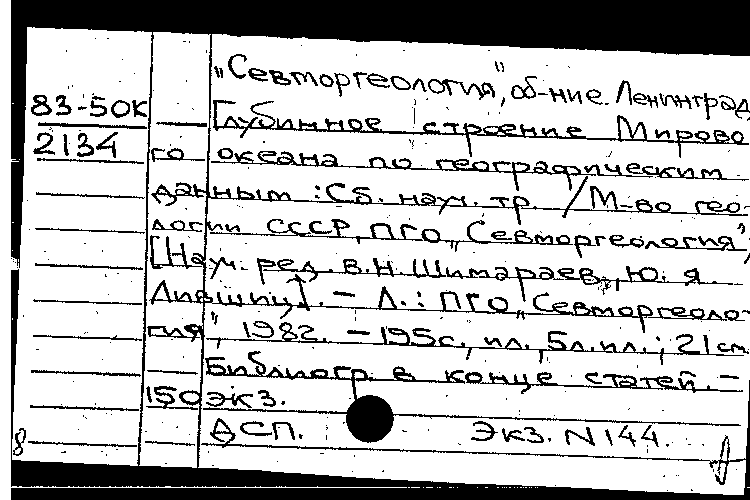 "Севморгеология", об-ние. Ленинград
83-50К Глубинное строение Мирово-
2134 го океана по географическим
данным : Сб. науч. тр. / М-во гео-
логии СССР, ПГО „Севморгеология",
[Науч. ред. В.Н. Шимараев, Ю. Я.
Лившиц]. – Л. : ПГО „Севморгеоло-
гия", 1982. – 195с., ил., 5л.ил.; 21см.
Библиогр. в конце статей. –
150экз.
ДСП. Экз. N 144.
8